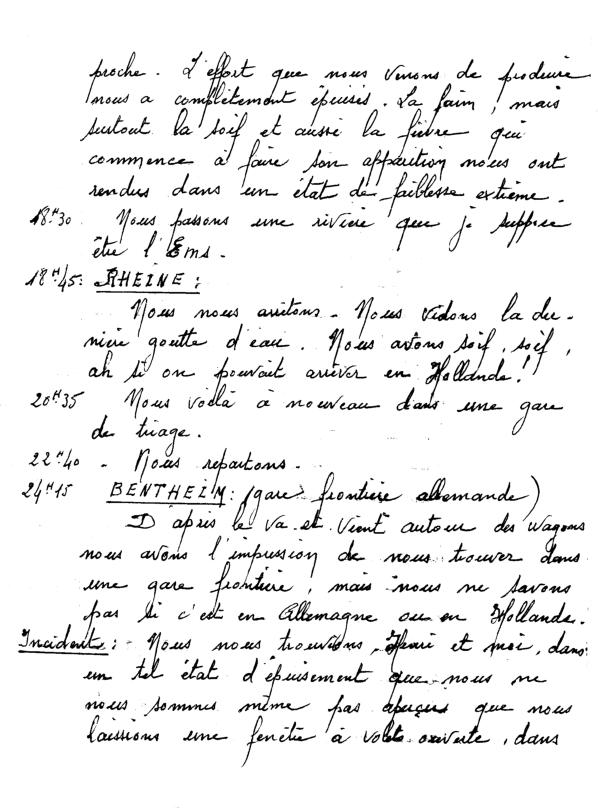 proche. L'effort que nous venons de produire
nous a complètement épuisés. La faim, mais
surtout la soif et aussi la fièvre qui
commence à faire son apparition nous ont
rendus dans un état de faiblesse extrème.
18H30 Nous passons une rivière que je suppose
être l'Ems.
18H45: RHEINE:
Nous nous arrêtons. Nous vidons la der-
nière goutte d'eau. Nous avons soif, soif,
ah si on pouvait arriver en Hollande!
20H35 Nous voilà à nouveau dans une gare
de triage.
22H40 - Nous repartons.
24H15 BENTHEIM: (gare frontière allemande)
D'après le va et vient autour des wagons
nous avons l'impression de nous trouver dans
une gare frontière, mais nous ne savons
pas si c'est en Allemagne ou en Hollande.
Incident: - Nous nous trouvions, Henri et moi, dans
un tel état d'épuisement que nous ne
nous sommes même pas aperçus que nous
laissions une fenêtre à volets ouverte, dans